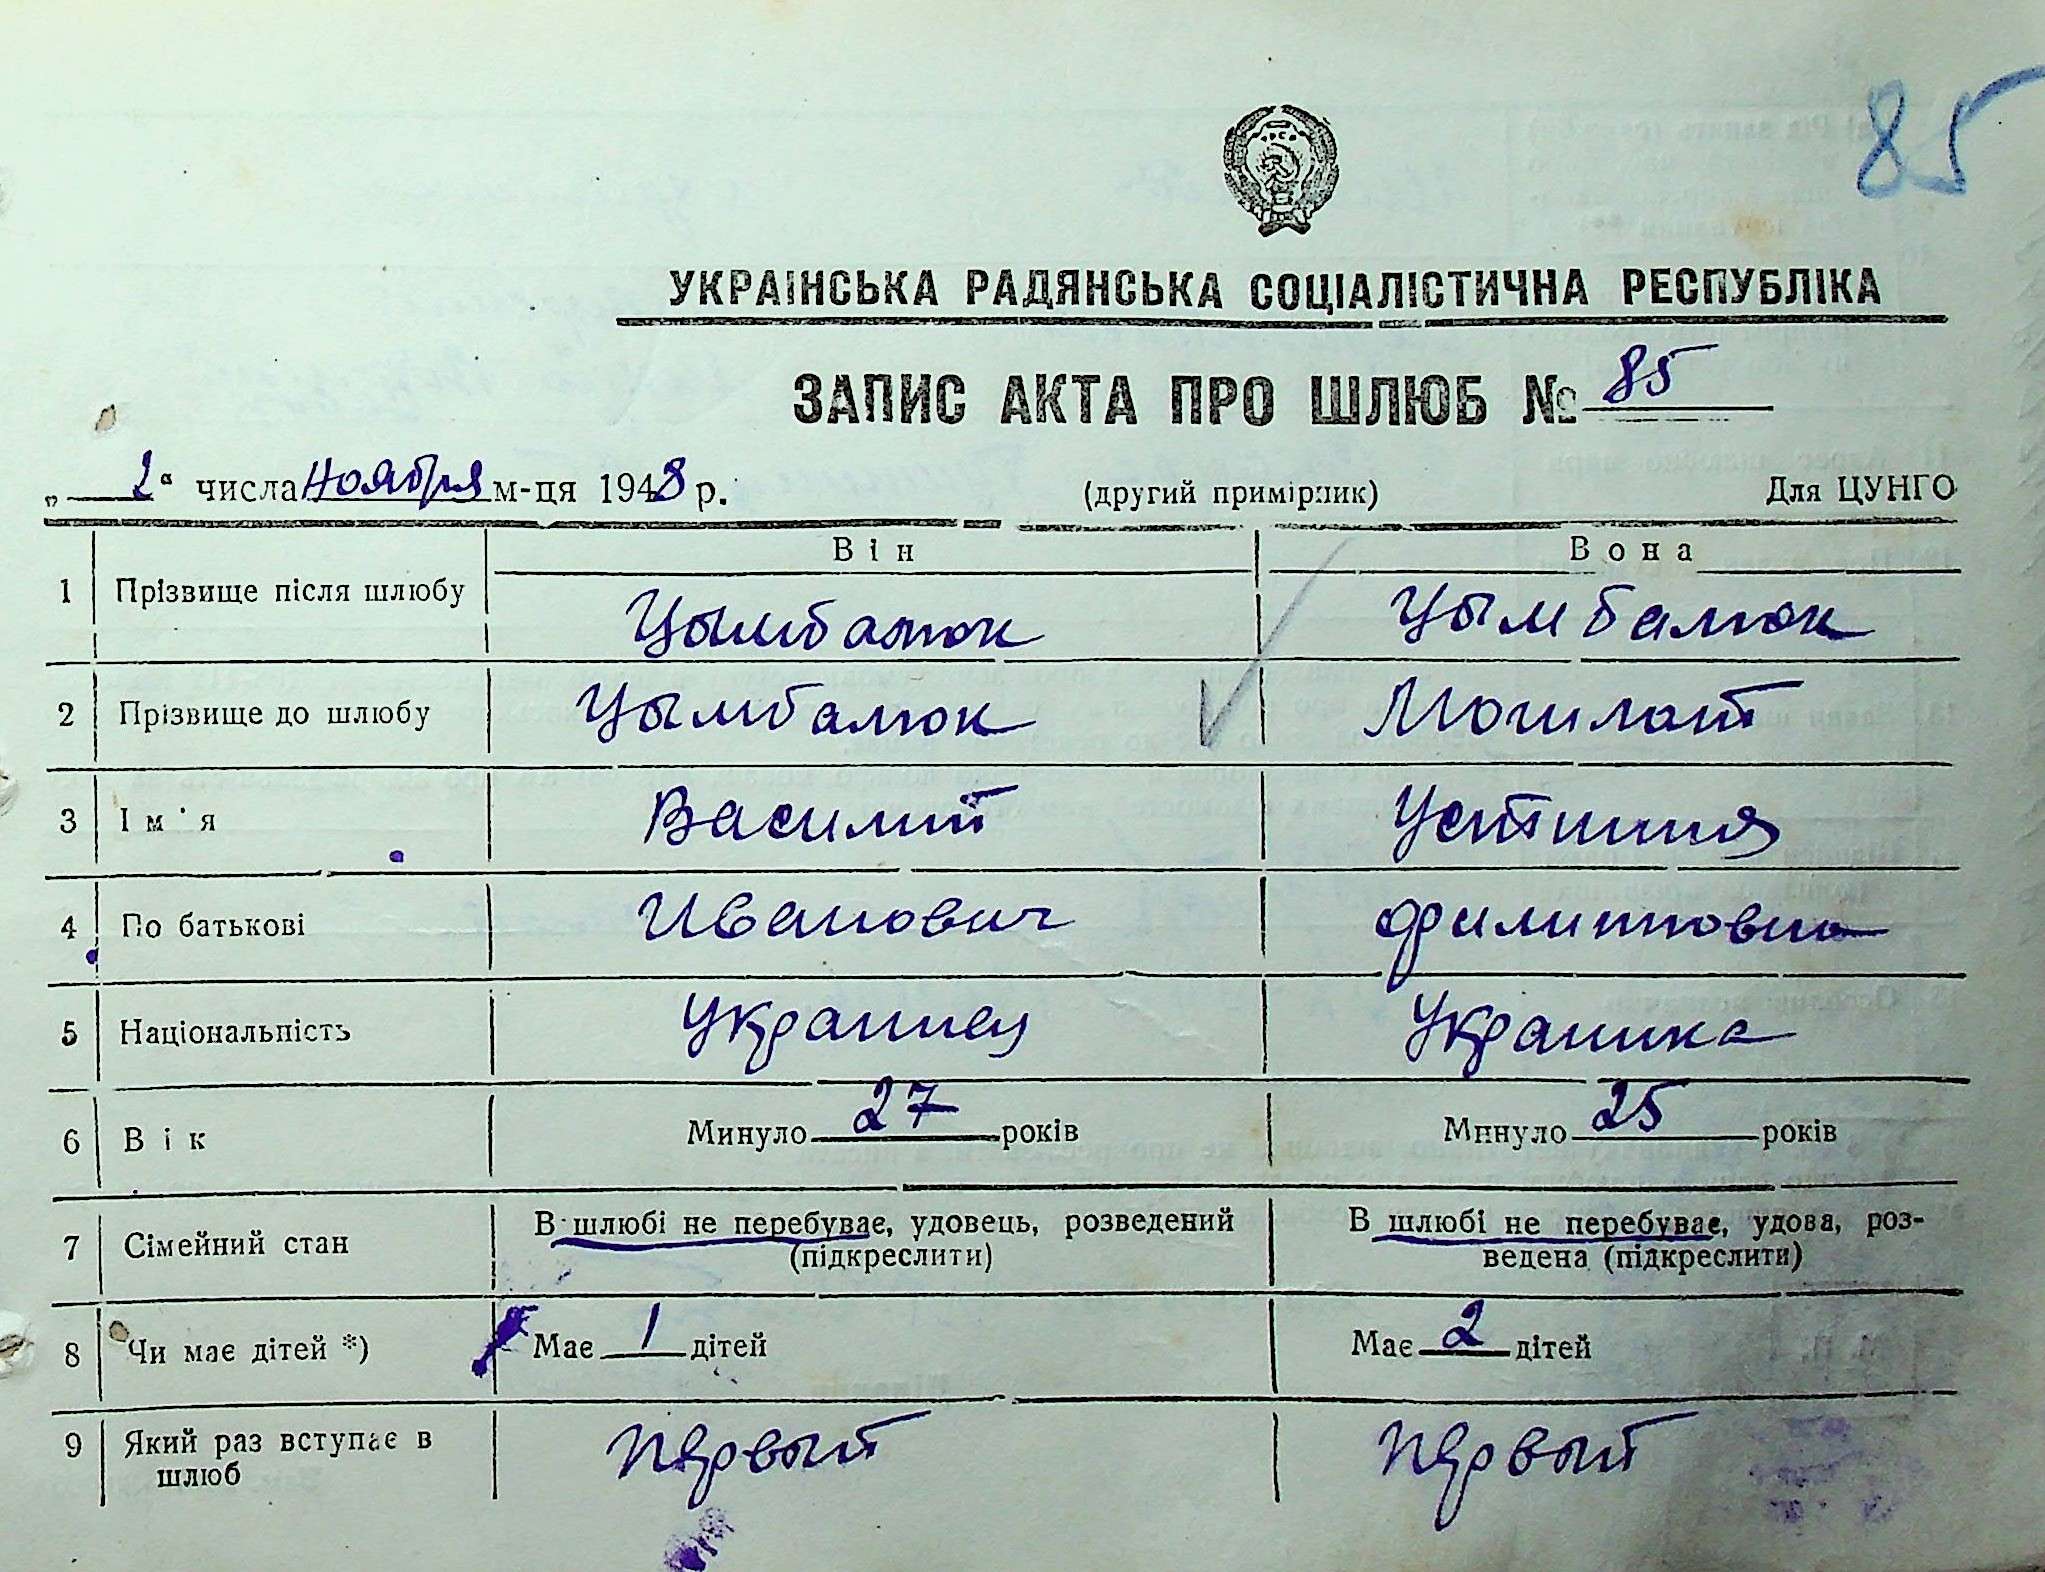 85
УКРАІНСЬКА РАДЯНСЬКА СОЦІАЛІСТИЧНА РЕСПУБЛІКА
ЗАПИС АКТА ПРО ШЛЮБ № 85
„ 2 “ числа ноября м-ця 1948 р. (другий примірник) Для ЦУНГО
Він Вона
1 Прізвище після шлюбу Цымбалюк Цымбалюк
2 Прізвище до шлюбу Цымбалюк
3 Ім'я Василий Устиния
4 По батькові Иванович Филипповна
5 Національність Украинец Украинка
6 Вік Минуло 27 років Минуло 25 років
7 Сімейний стан В шлюбі не перебуває, удовець, розведений В шлюбі не перебуває, удова, роз-
(підкреслити) ведена (підкреслити)
8 Чи має дітей *) Має 1 дітей Має 2 дітей
9 Який раз вступає в первый первый
шлюб